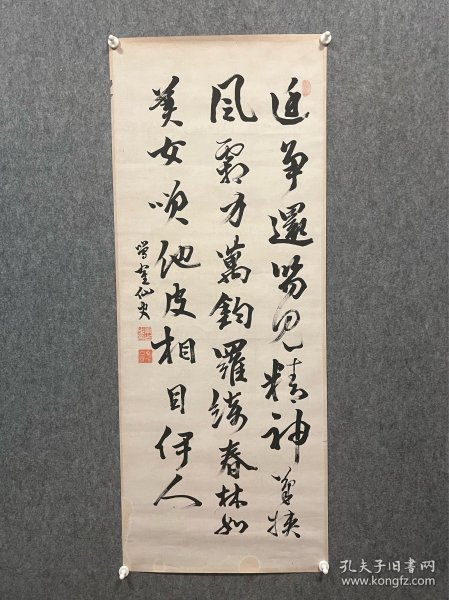 近争還劣見精神筆挟
風霜力萬鈞羅綺春林如
美女唤他皮相目伊人
仙史
孔夫子旧书网
www.kongfz.com